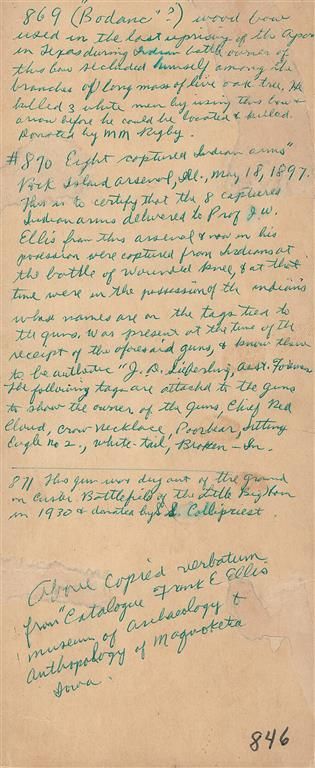 869 ("Bodanc"?) wood bow
used in the last uprising of the Apac
in Texas during Indian battle owner of
this bow secluded himself among the
branches of long moss of live oak tree. He
killed 3 white men by using this bow &
arrow before he could be located & killed.
Donated by M M Rigby.
#870 Eight captured Indian arms"
Rock Island Arsenal, Ill., May 18, 1897.
This is to certify that the 8 captured
Indian arms delivered to Prof J.W.
Ellis from this arsenal & now in his
possession were captured from Indians at
the battle of Wounded Knee, & at that
time were in the possession of the indians
whose names are on the tags tied to
the guns. Was present at the time of the
receipt of the aforesaid guns, & know them
to be authentic "J. B. asst. Foreman
The following tags are attached to the guns
to show the owner of the guns, Chief Red
Cloud, Crow Necklace, Poorbear, Sitting
Eagle no 2., White-tail, Broken-In.
871 This gun was dug out of the ground
on Custer Battlefield of the Little Big Horn
in 1930 & donated by S. Collipriest.
Above copied verbatum
from "Catalogue Frank E Ellis
museum of Archaeology &
Anthropology of Maquoketa
Iowa.
846